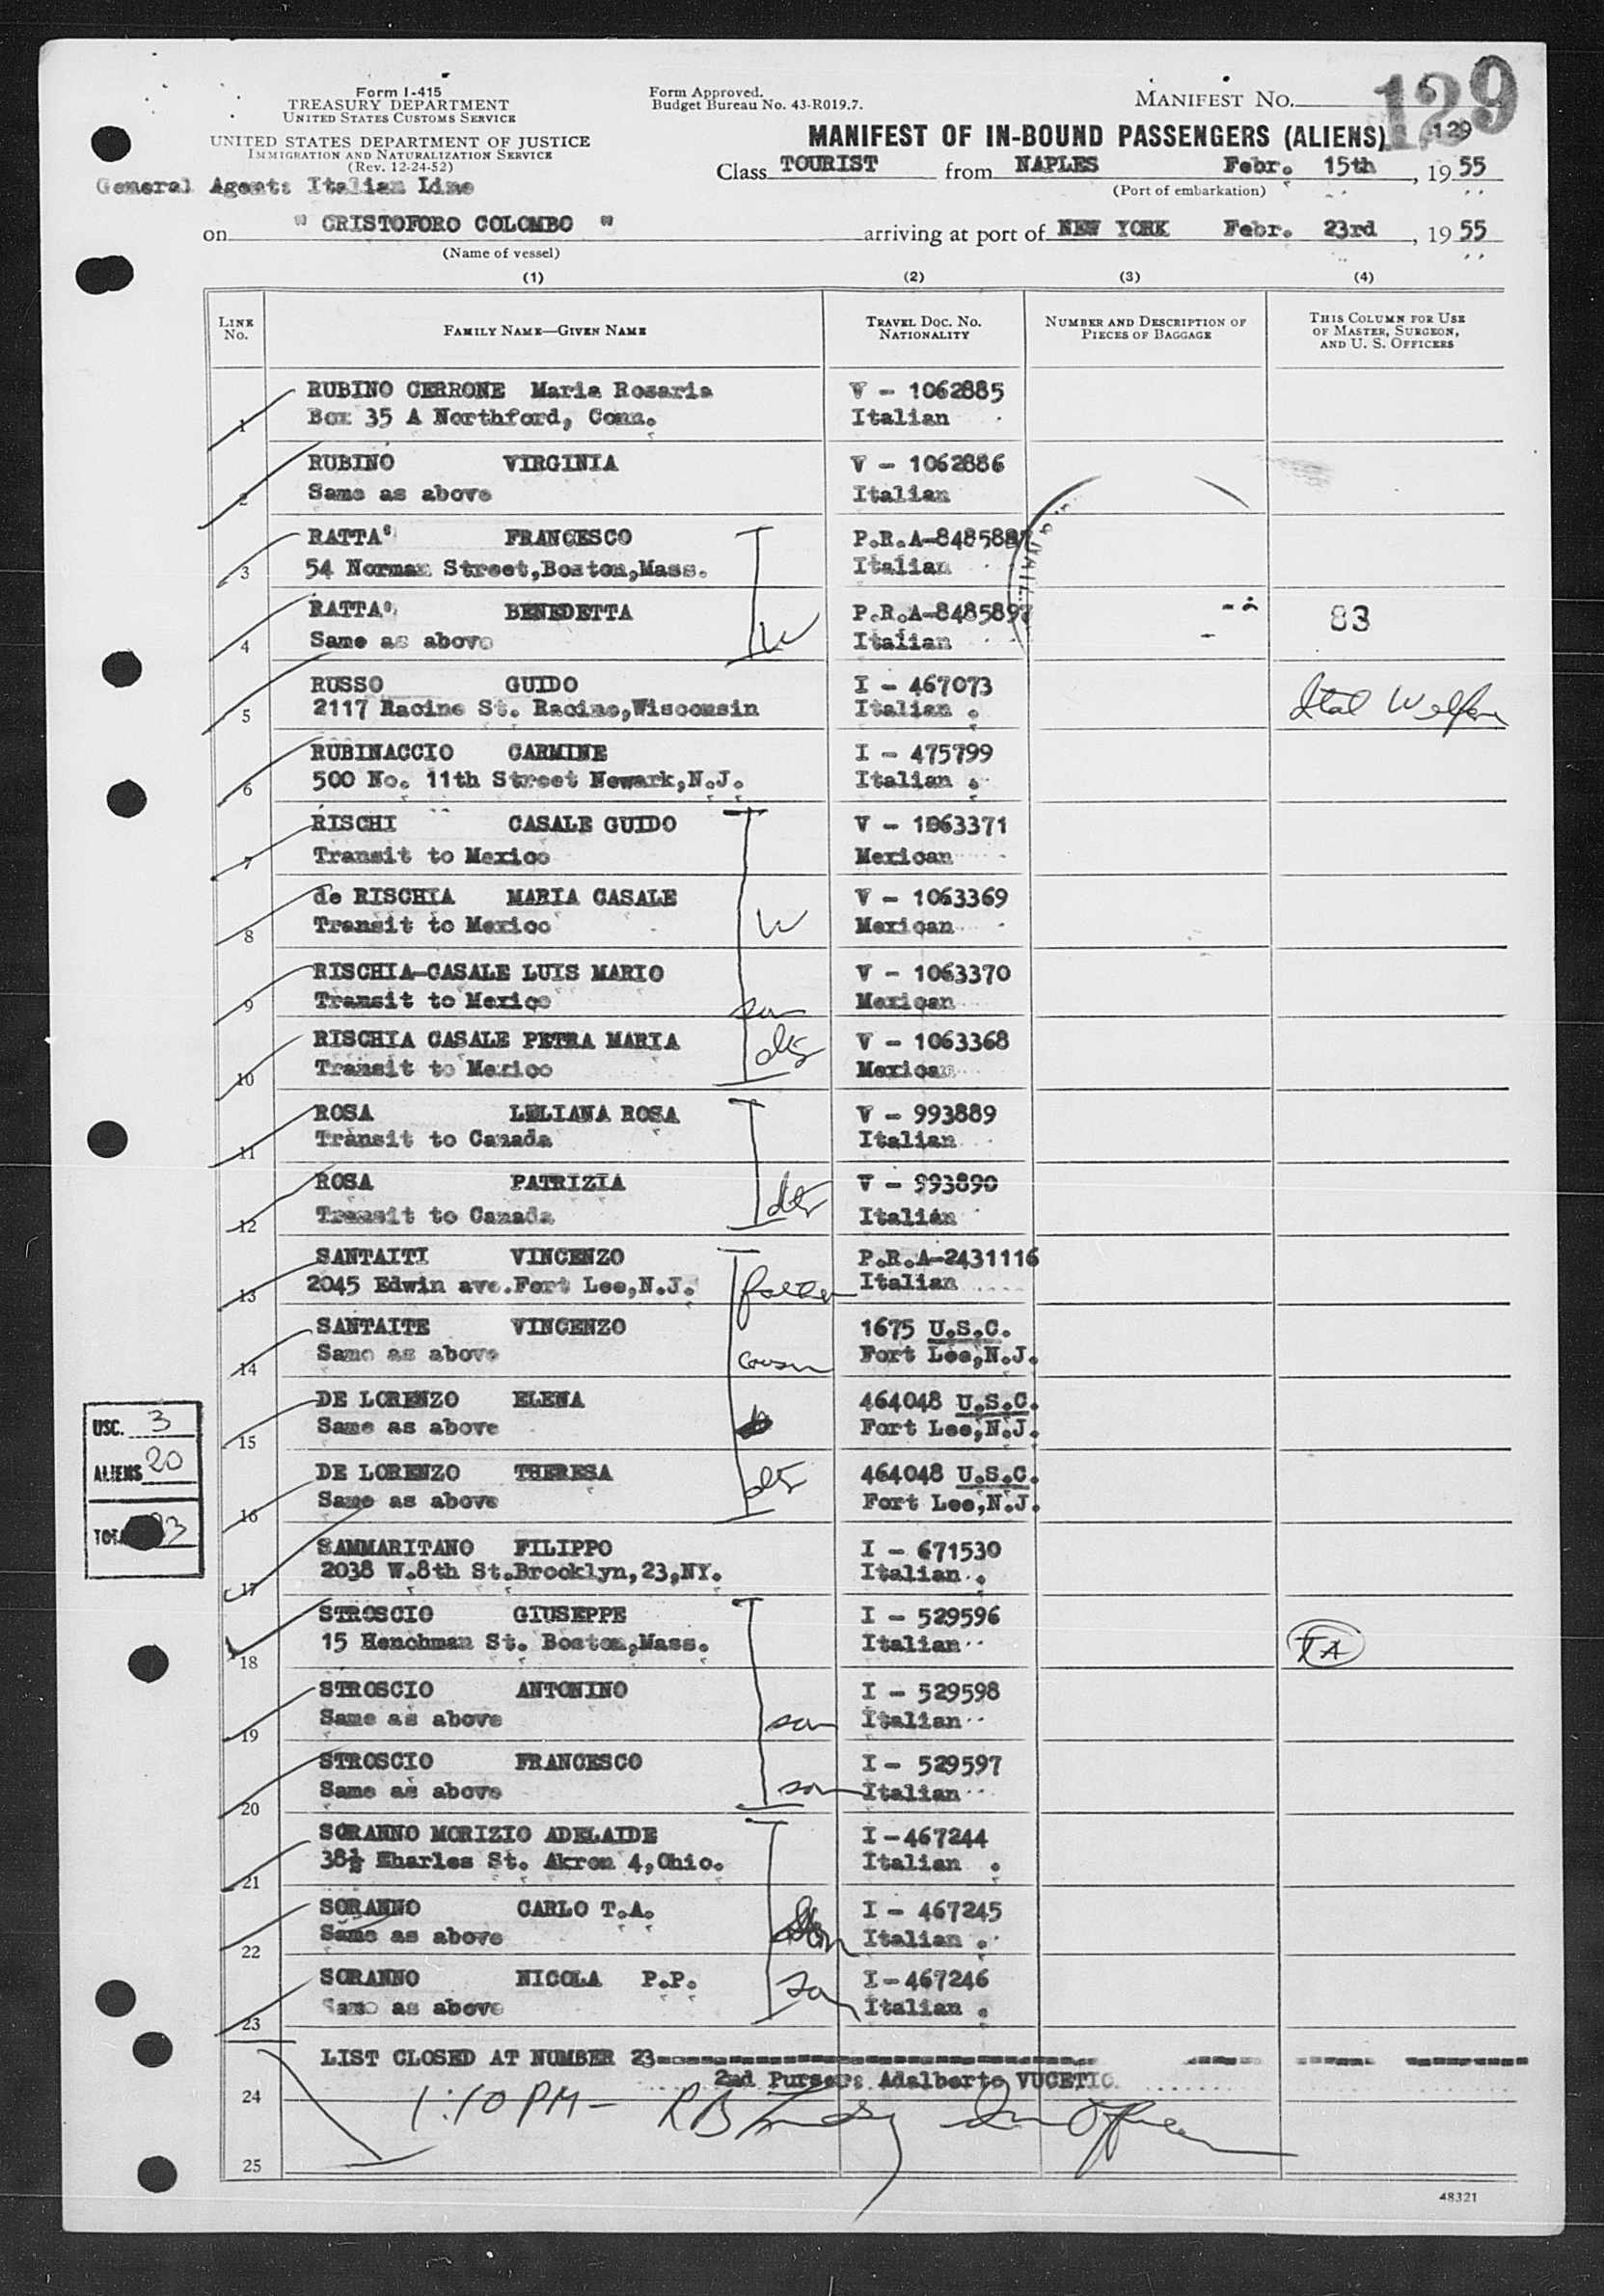 129
Form I-415
TREASURY DEPARTMENT
UNITED STATES CUSTOMS SERVICE
UNITED STATES DEPARTMENT OF JUSTICE
IMMIGRATION AND NATURALIZATION SERVICE
(Rev. 12-24-52)
General Agents Italian Line
Form Approved.
Budget Bureau No. 43-R019.7.
MANIFEST NO. 129
MANIFEST OF IN-BOUND PASSENGERS (ALIENS)
Class TOURIST from NAPLES Febr. 15th, 1955
(Port of embarkation)
on " CRISTOFORO COLOMBO " arriving at port of NEW YORK Febr. 23rd, 1955
(Name of vessel)
(1) (2) (3) (4)
LINE No. FAMILY NAME—GIVEN NAME TRAVEL DOC. NO. NATIONALITY NUMBER AND DESCRIPTION OF PIECES OF BAGGAGE THIS COLUMN FOR USE OF MASTER, SURGEON, AND U. S. OFFICERS
1 RUBINO CERRONE Maria Rosaria V - 1062885
Box 35 A Northford, Conn. Italian
2 RUBINO VIRGINIA V - 1062886
Same as above Italian
3 RATTA' FRANCESCO P.R.A-8485887
54 Norman Street,Boston,Mass. Italian
4 RATTA' BENEDETTA P.R.A-8485897 83
Same as above W Italian
5 RUSSO GUIDO I - 467073
2117 Racine St. Racine,Wisconsin Italian . Ital Welfare
6 RUBINACCIO CARMINE I - 475799
500 No. 11th Street Newark,N.J. Italian .
7 RISCHI CASALE GUIDO V - 1063371
Transit to Mexico Mexican
8 de RISCHIA MARIA CASALE V - 1063369
Transit to Mexico W Mexican
9 RISCHIA-CASALE LUIS MARIO V - 1063370
Transit to Mexico son Mexican
10 RISCHIA CASALE PETRA MARIA V - 1063368
Transit to Mexico dtr Mexican
11 ROSA LELIANA ROSA V - 993889
Transit to Canada Italian
12 ROSA PATRIZIA V - 993890
Transit to Canada dtr Italian
13 SANTAITI VINCENZO P.R.A-2431116
2045 Edwin ave.Fort Lee,N.J. father Italian
14 SANTAITE VINCENZO 1675 U.S.C.
Same as above cousin Fort Lee,N.J.
15 DE LORENZO ELENA 464048 U.S.C.
Same as above Fort Lee,N.J.
16 DE LORENZO THERESA 464048 U.S.C.
Same as above dtr Fort Lee,N.J.
USC. 3
ALIENS 20
TOTAL 23
17 SAMMARITANO FILIPPO I - 671530
2038 W.8th St.Brooklyn,23,NY. Italian .
18 STROSCIO GIUSEPPE I - 529596
15 Henchman St. Boston,Mass. Italian TA
19 STROSCIO ANTONINO I - 529598
Same as above son Italian
20 STROSCIO FRANCESCO I - 529597
Same as above son Italian
21 SORANNO MORIZIO ADELAIDE I - 467244
38½ Eharles St. Akron 4,Ohio. Italian .
22 SORANNO CARLO T.A. I - 467245
Same as above son Italian .
23 SORANNO NICOLA P.P. I - 467246
Same as above son Italian .
LIST CLOSED AT NUMBER 23
24 2nd Purser: Adalberto VUCETIC
1:10 PM - R B
25
48321